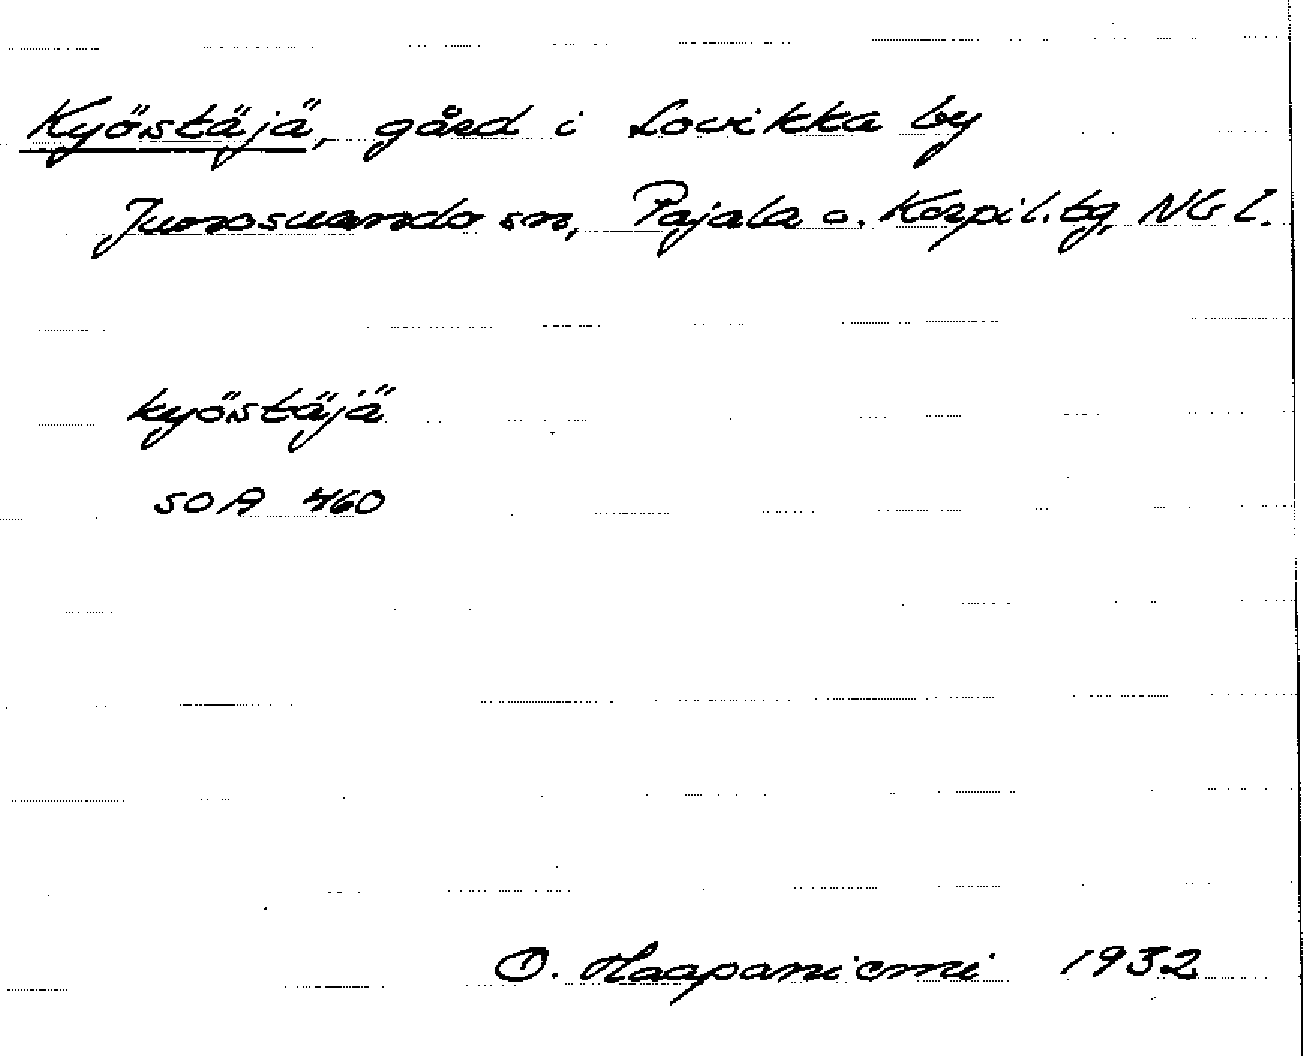 Kyöstäjä, gård i Lovikka by
Junosuando sn, Pajala o. Korpil. tg, NGL.
kyöstäjä
SOA 460
O. Haapaniemi 1932